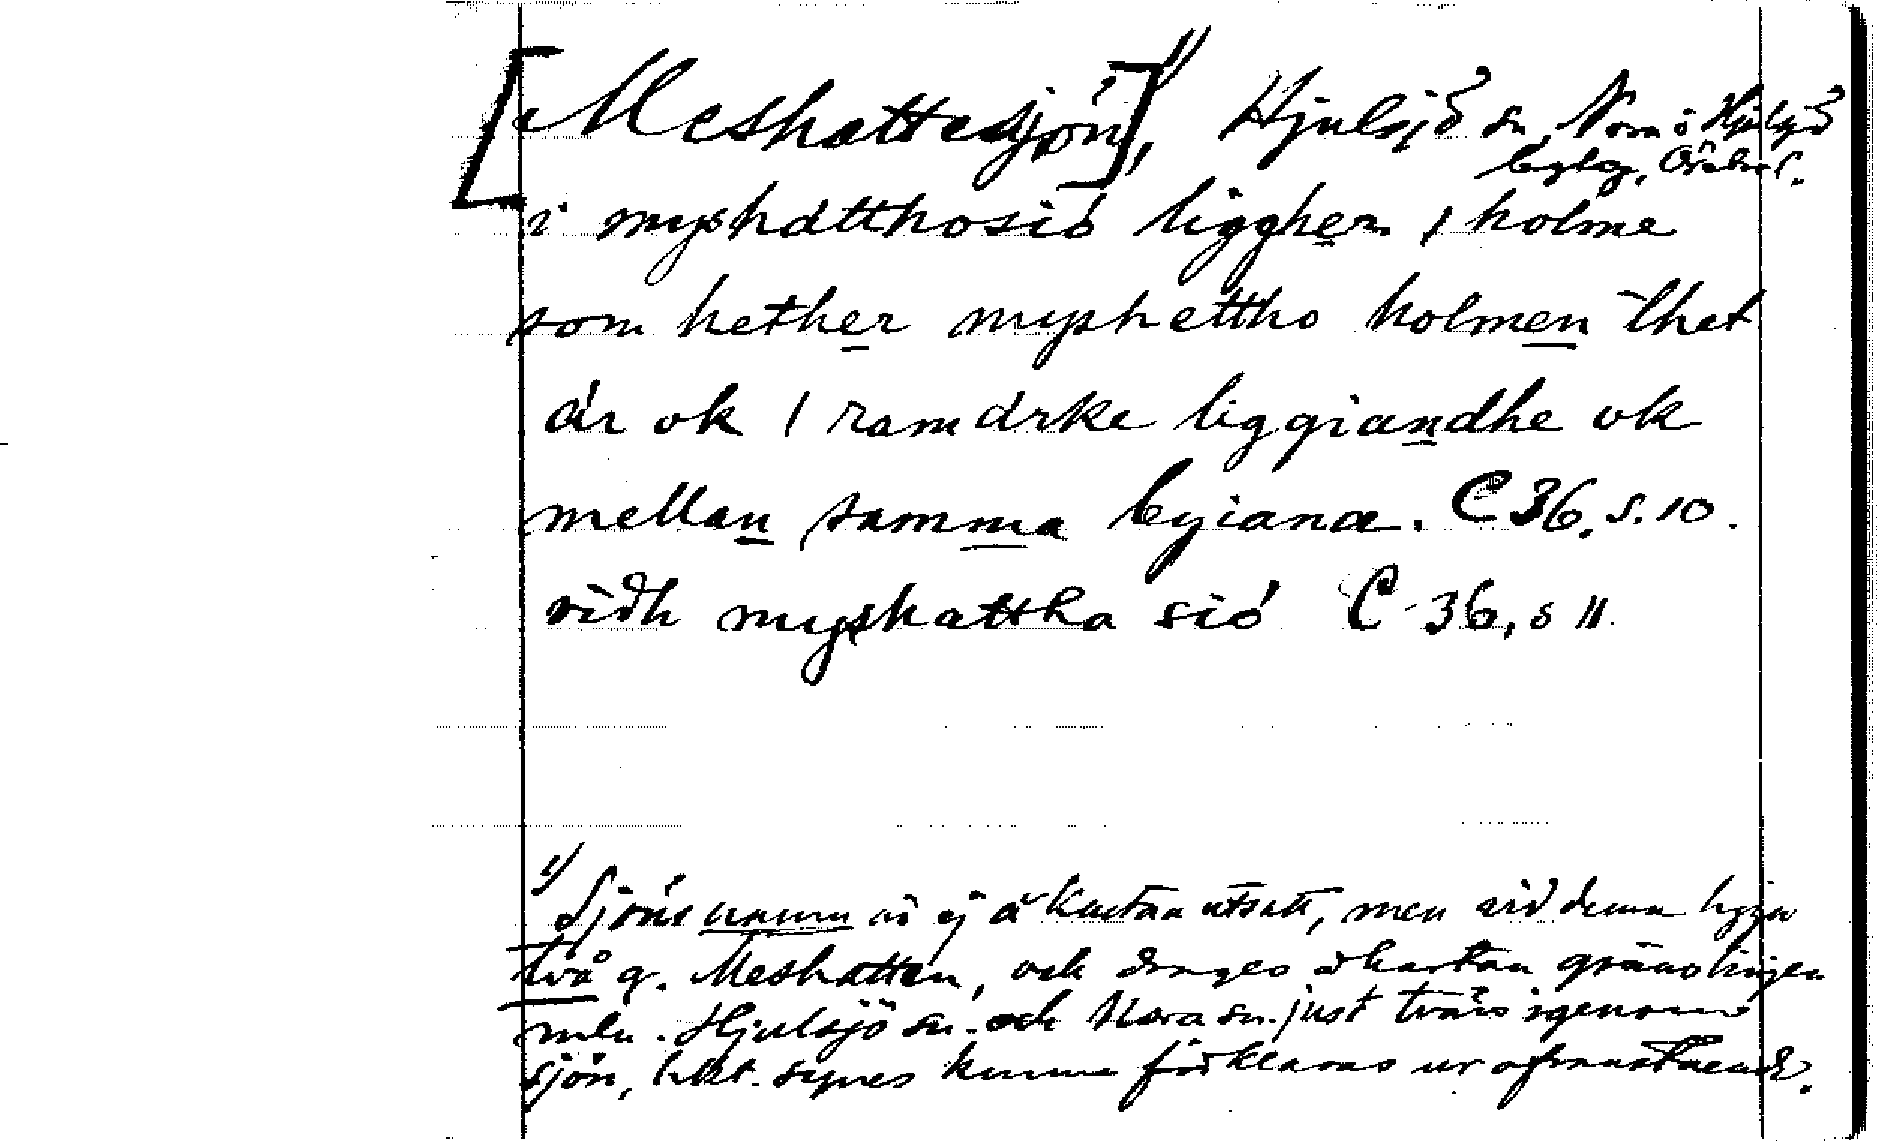 [Meshattesjön]¹⁾, Hjulsjö sn, Nora o Hjulsjö
bergslag, Örebro l.
i myshátthosió liggher / holme
som hether myshettho holmen thet
ár ok / ramárke liggiandhe ok
mellan samma byiana. C 36, s. 10.
vidh myshattha sió C 36, s 11.
1) Sjöns namn är ej å kartan utsatt, men vid denna ligga
två g. Meshatten, och drages å kartan gränslinjen
mln. Hjulsjö sn. och Nora sn. just tvärs igenom
sjön, hkt. synes kunna förklaras ur ofvanstående.